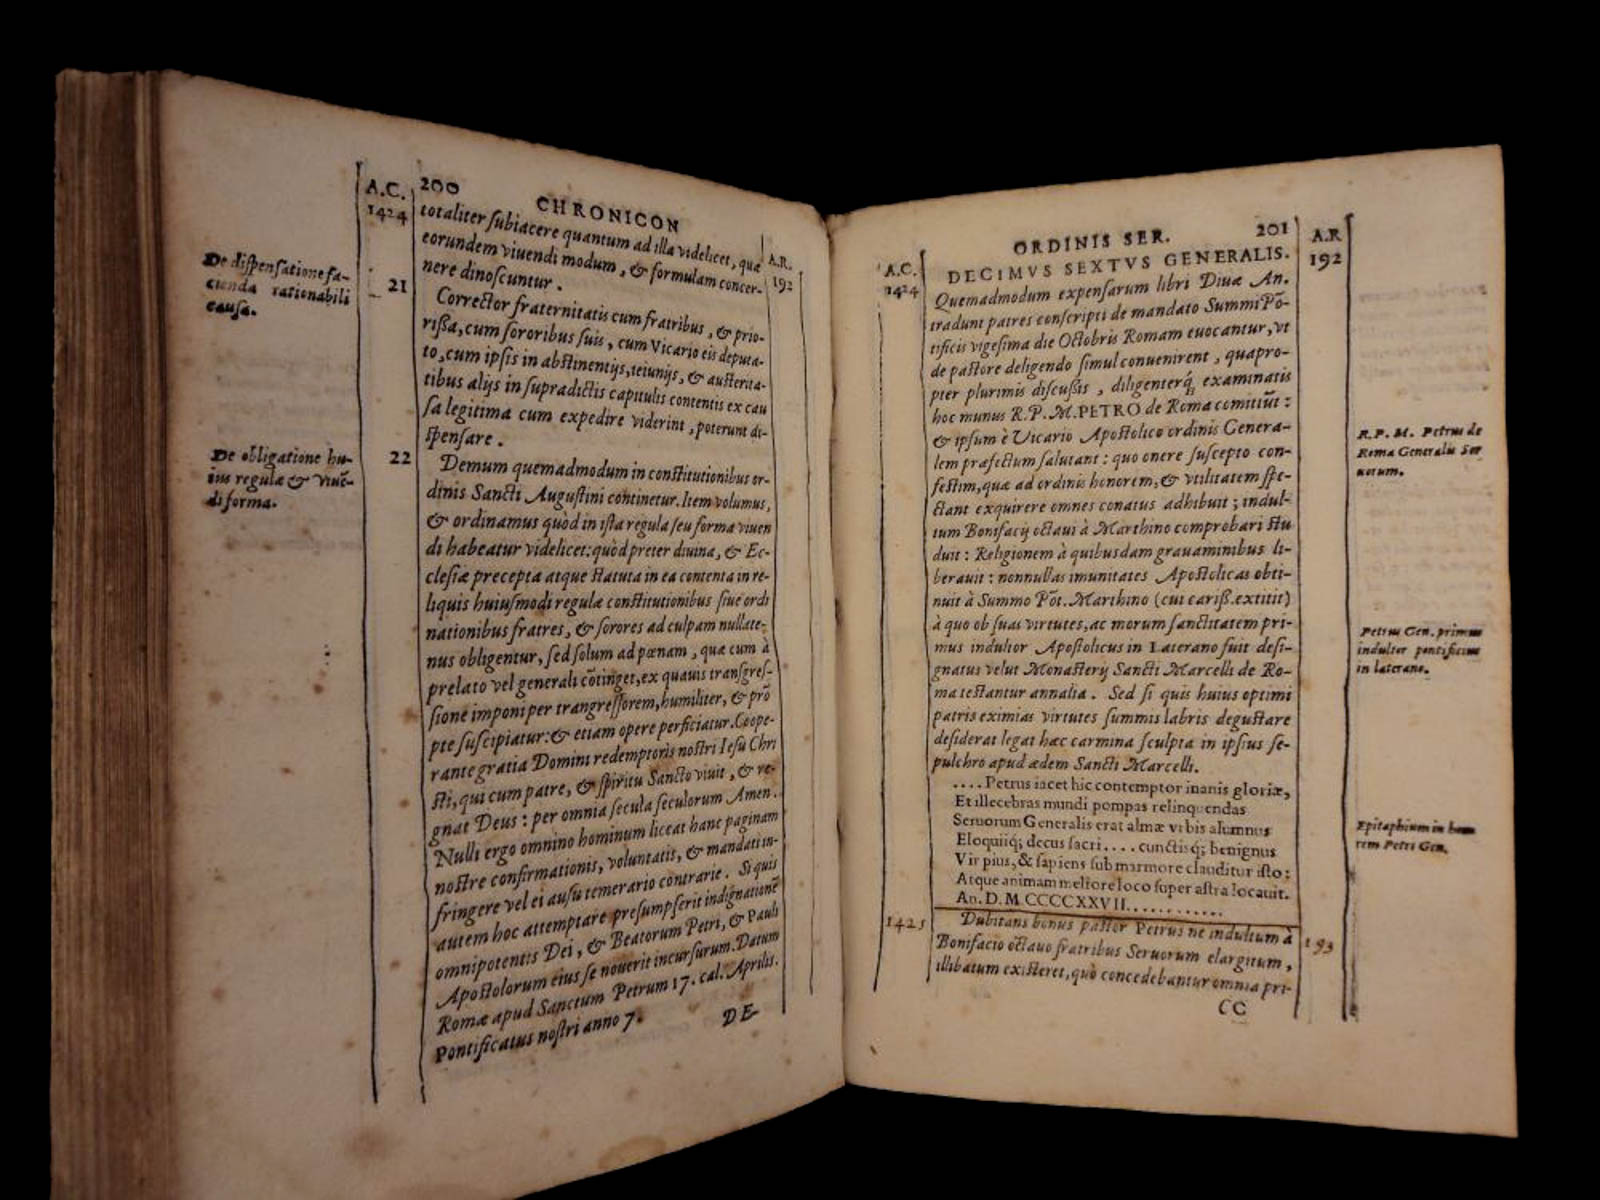 200
CHRONICON
A.C.
1424
A.R.
192
totaliter subiacere quantum ad illa videlicet, quæ
eorundem viuendi modum, & formulam concer-
nere dinoscuntur.
De dispensatione fa-
cienda rationabili
causa.
21
Corrector fraternitatis cum fratribus, & prio-
rissa, cum sororibus suis, cum Vicario eis deputa-
to, cum ipsis in abstinentijs, ieiunijs, & austerita-
tibus alijs in supradictis capitulis contentis ex cau
sa legitima cum expedire viderint, poterunt di-
spensare.
De obligatione hu-
ius regulæ & viuẽ-
di forma.
22
Demum quemadmodum in constitutionibus or-
dinis Sancti Augustini continetur. Item volumus,
& ordinamus quòd in ista regula seu forma viuen
di habeatur videlicet: quòd preter diuina, & Ec-
clesiæ precepta atque statuta in ea contenta in re-
liquis huiusmodi regulæ constitutionibus siue ordi
nationibus fratres, & sorores ad culpam nullate-
nus obligentur, sed solum ad pœnam, quæ cum à
prelato vel generali cõtinget, ex quauis transgres-
sione imponi per trangressorem, humiliter, & prõ
pte suscipiatur: & etiam opere perficiatur. Coope-
rante gratia Domini redemptoris nostri Iesu Chri
sti, qui cum patre, & spiritu Sancto viuit, & re-
gnat Deus: per omnia secula seculorum Amen.
Nulli ergo omnino hominum liceat hanc paginam
nostre confirmationis, voluntatis, & mandati in-
fringere vel ei ausu temerario contrarie. Si quis
autem hoc attemptare presumpserit indignationẽ
omnipotentis Dei, & Beatorum Petri, & Pauli
Apostolorum eius se nouerit incursurum. Datum
Romæ apud Sanctum Petrum 17. cal. Aprilis.
Pontificatus nostri anno 7.
DE-
ORDINIS SER.
201
A.C.
1424
A.R
192
DECIMVS SEXTVS GENERALIS.
Quemadmodum expensarum libri Diuæ An.
tradunt patres conscripti de mandato Summi Põ-
tificis vigesima die Octobris Romam euocantur, vt
de pastore deligendo simul conuenirent, quapro-
pter plurimis discussis, diligenterq́ examinatis
hoc munus R.P.M.PETRO de Roma comitiũt:
& ipsum è Vicario Apostolico ordinis Genera-
lem præfectum salutant: quo onere suscepto con-
festim, quæ ad ordinis honorem, & vtilitatem spe-
ctant exquirere omnes conatus adhibuit; indul-
tum Bonifacij octaui à Marthino comprobari stu
duit: Religionem à quibusdam grauaminibus li-
berauit: nonnullas imunitates Apostolicas obti-
nuit à Summo Põt. Marthino (cui cariss. extitit)
à quo ob suas virtutes, ac morum sanctitatem pri-
mus indultor Apostolicus in Laterano fuit desi-
gnatus velut Monasterij Sancti Marcelli de Ro-
ma testantur annalia. Sed si quis huius optimi
patris eximias virtutes summis labris degustare
desiderat legat hæc carmina sculpta in ipsius se-
pulchro apud ædem Sancti Marcelli.
R.P. M. Petrus de
Roma Generalis Ser
uorum.
Petrus Gen. primus
indultor pontificius
in laterano.
....Petrus iacet hic contemptor inanis gloriæ,
Et illecebras mundi pompas relinquendas
Seruorum Generalis erat almæ vrbis alumnus
Eloquiiq; decus sacri.... cunctisq; benignus
Vir pius, & sapiens sub marmore clauditur isto:
Atque animam meliore loco super astra locauit.
An. D. M CCCCXXVII............
Epitaphium in hono
rem Petri Gen.
1425
193
Dubitans bonus pastor Petrus ne indultum à
Bonifacio octauo fratribus Seruorum elargitum,
illibatum existeret, quo concedebantur omnia pri-
CC